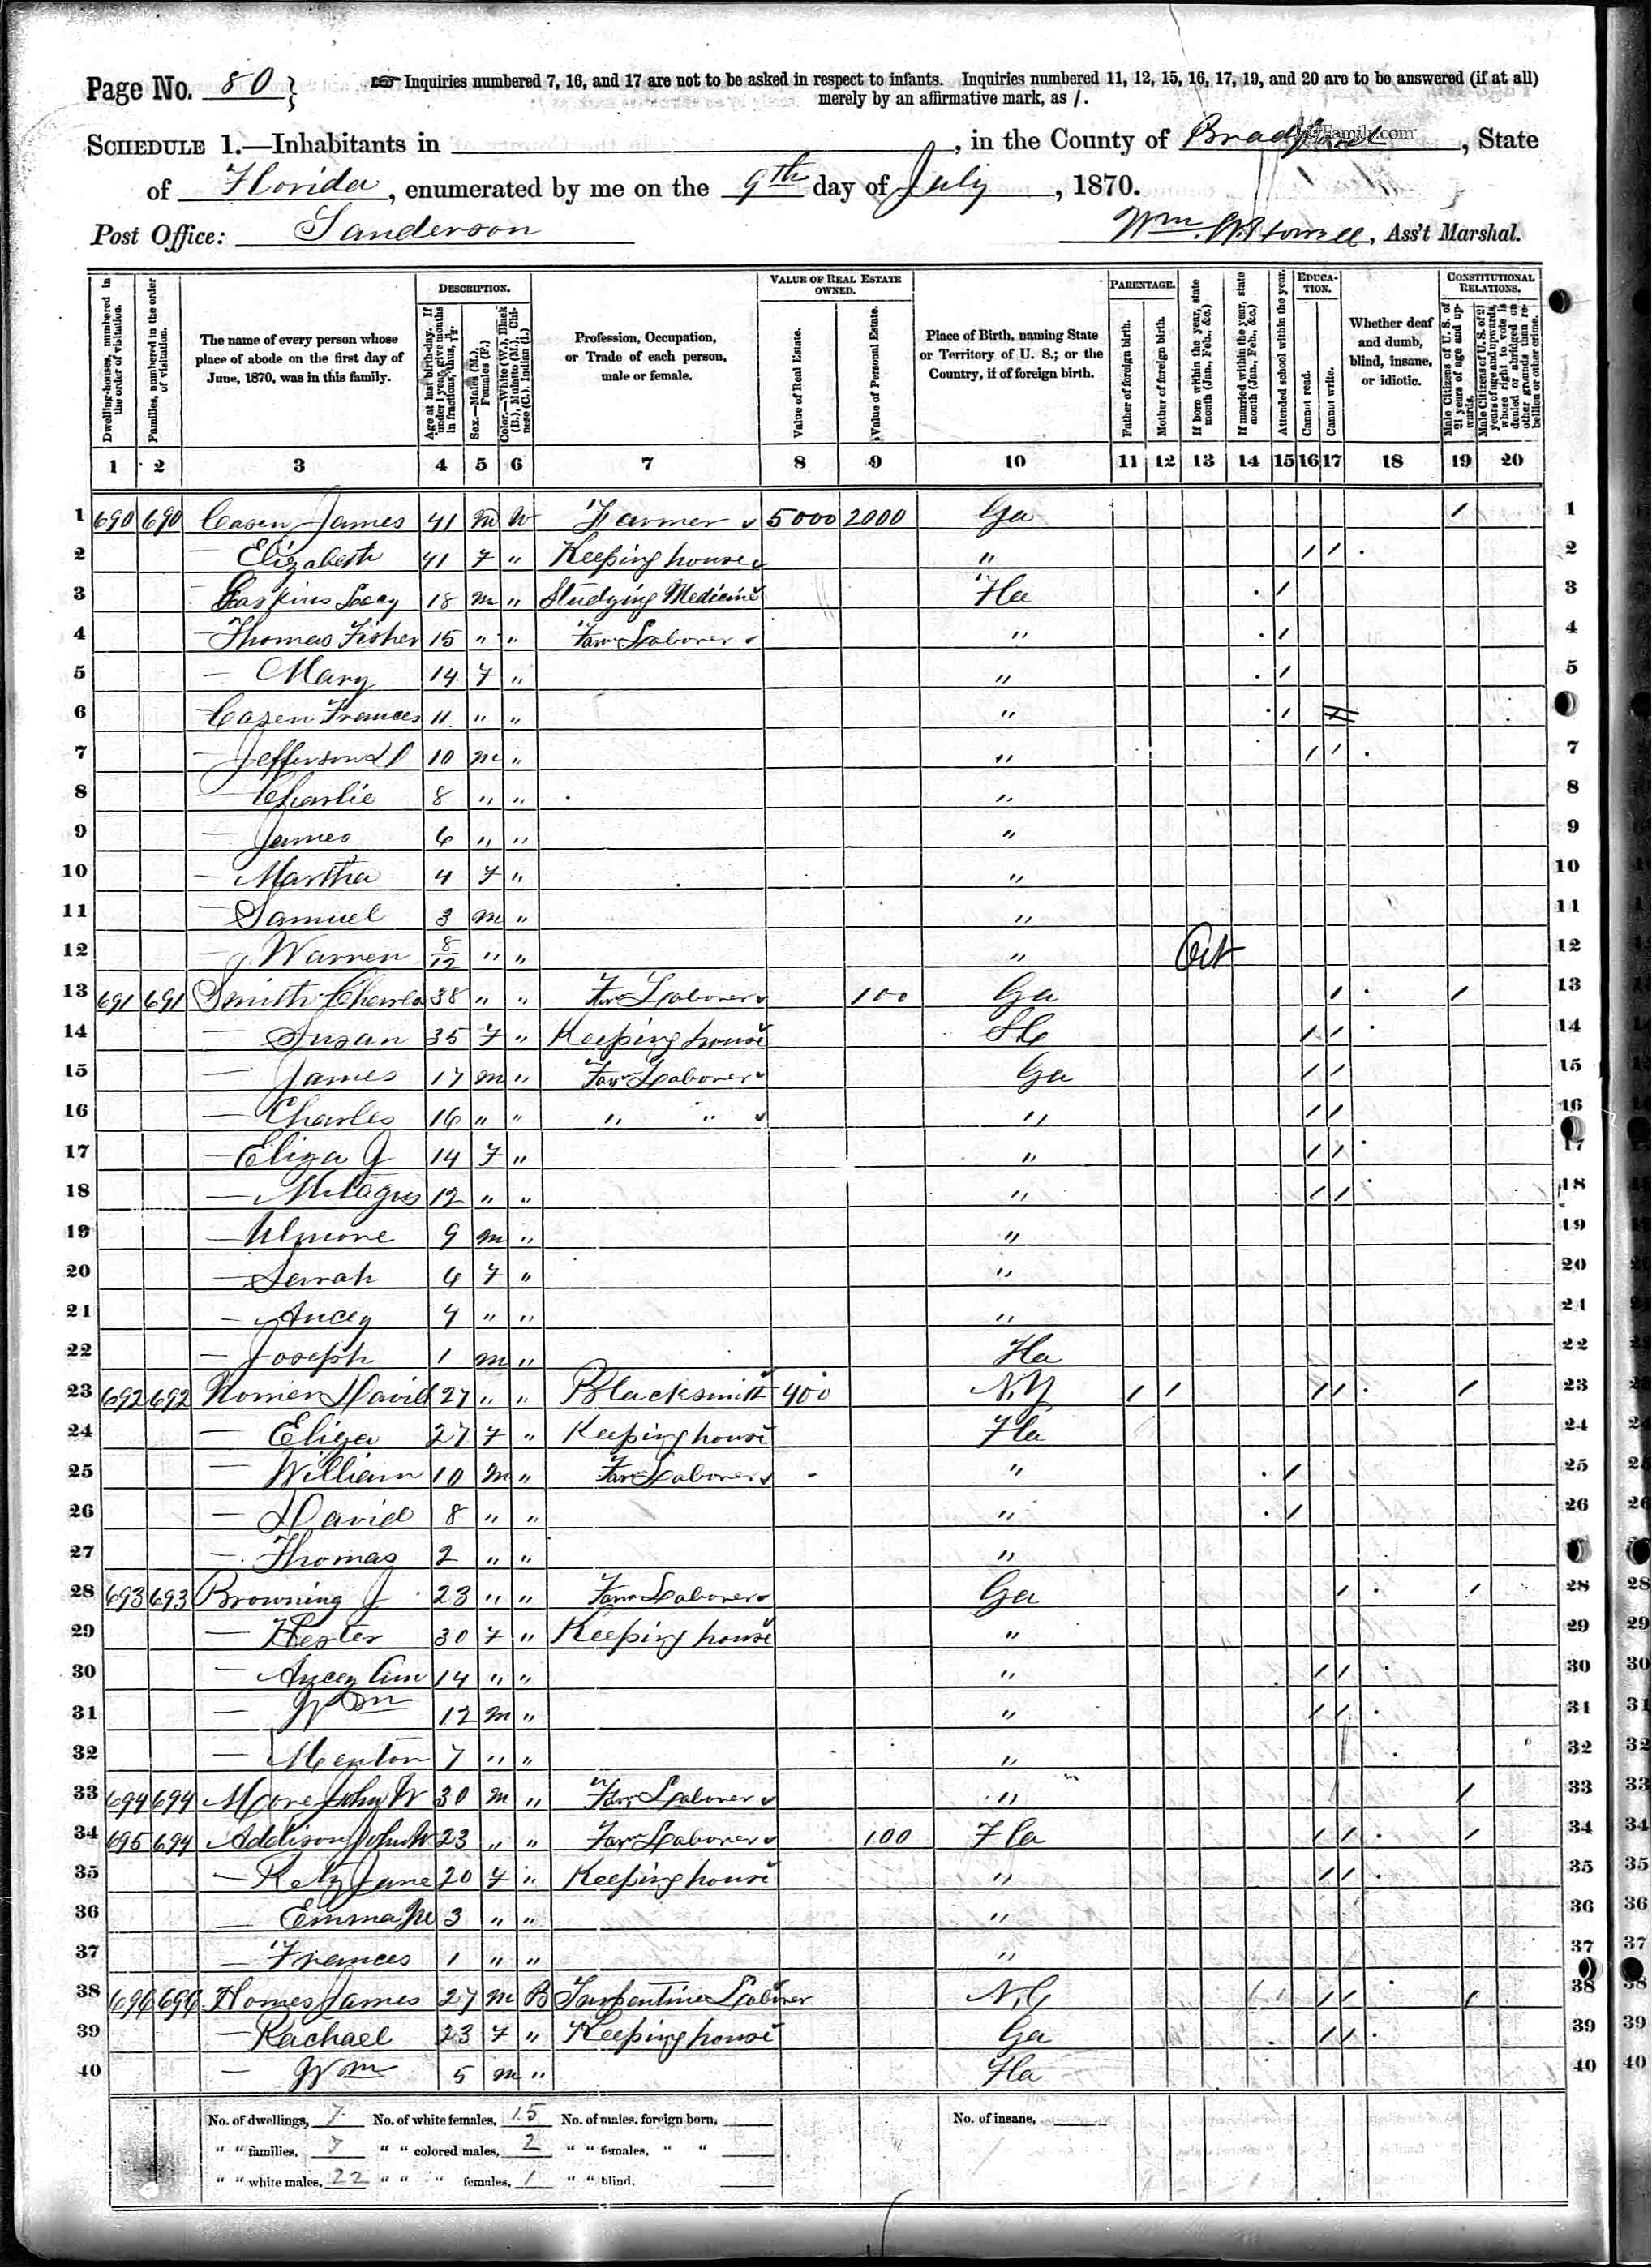 Page No. 80
Inquiries numbered 7, 16, and 17 are not to be asked in respect to infants. Inquiries numbered 11, 12, 15, 16, 17, 19, and 20 are to be answered (if at all)
merely by an affirmative mark, as /.
SCHEDULE 1.—Inhabitants in , in the County of Bradford, State
of Florida, enumerated by me on the 9th day of July, 1870.
Post Office: Sanderson
Wm. , Ass't Marshal.
Dwelling-houses, numbered in the order of visitation.
Families, numbered in the order of visitation.
The name of every person whose place of abode on the first day of June, 1870, was in this family.
DESCRIPTION.
Age at last birth-day. If under 1 year, give months in fractions, thus, 3/12.
Sex.—Males (M.), Females (F.)
Color.—White (W.), Black (B.), Mulatto (M.), Chinese (C.), Indian (I.)
Profession, Occupation, or Trade of each person, male or female.
VALUE OF REAL ESTATE OWNED.
Value of Real Estate.
Value of Personal Estate.
Place of Birth, naming State or Territory of U. S.; or the Country, if of foreign birth.
PARENTAGE.
Father of foreign birth.
Mother of foreign birth.
If born within the year, state month (Jan., Feb., &c.)
If married within the year, state month (Jan., Feb., &c.)
Attended school within the year.
EDUCATION.
Cannot read.
Cannot write.
Whether deaf and dumb, blind, insane, or idiotic.
CONSTITUTIONAL RELATIONS.
Male Citizens of U. S. of 21 years of age and upwards.
Male Citizens of U. S. of 21 years of age and upwards, whose right to vote is denied or abridged on other grounds than rebellion or other crime.
1 2 3 4 5 6 7 8 9 10 11 12 13 14 15 16 17 18 19 20
1 690 690 Casen James 41 M W Farmer 5000 2000 Ga / 1
2 — Elizabeth 41 F " Keeping house " / / 2
3 Gaskins Lacy 18 M " Studying Medicine Fla / 3
4 — Thomas Fisher 15 " " Farm Laborer " / 4
5 — Mary 14 F " " / 5
6 Casen Frances 11 " " " / 6
7 — Jefferson D 10 M " " / / 7
8 — Charlie 8 " " " 8
9 — James 6 " " " 9
10 — Martha 4 F " " 10
11 — Samuel 3 M " " 11
12 — Warren 8/12 " " " Oct 12
13 691 691 Smith Charles 38 " " Farm Laborer 100 Ga / / 13
14 — Susan 35 F " Keeping house SC / / 14
15 — James 17 M " Farm Laborer Ga / / 15
16 — Charles 16 " " " " " / / 16
17 — Eliza J 14 F " " / / 17
18 — 12 " " " / / 18
19 — 9 M " " 19
20 — Sarah 6 F " " 20
21 — Ancey 4 " " " 21
22 — Joseph 1 M " Fla 22
23 692 692 David 27 " " Blacksmith 400 N.Y / / / / / 23
24 — Eliza 27 F " Keeping house Fla 24
25 — William 10 M " Farm Laborer " / 25
26 — David 8 " " " / 26
27 — Thomas 2 " " " 27
28 693 693 Browning J 23 " " Farm Laborer Ga / / 28
29 — Hester 30 F " Keeping house " 29
30 — Ancey Ann 14 " " " / / 30
31 — Wm 12 M " " / / 31
32 — Menton 7 " " " 32
33 694 694 Moore John W 30 M " Farm Laborer " / 33
34 695 694 Addison John W 23 " " Farm Laborer 100 Fla / / / 34
35 — Katy Jane 20 F " Keeping house " / / 35
36 — Emma M 3 " " " 36
37 — Frances 1 " " " 37
38 696 696 Homes James 27 M B Turpentine Laborer N.C / / / 38
39 — Rachael 23 F " Keeping house Ga / / 39
40 — Wm 5 M " Fla 40
No. of dwellings, 7 No. of white females, 15 No. of males, foreign born, No. of insane,
" " families, 7 " " colored males, 2 " " females, " "
" " white males, 22 " " " females, 1 " " blind,